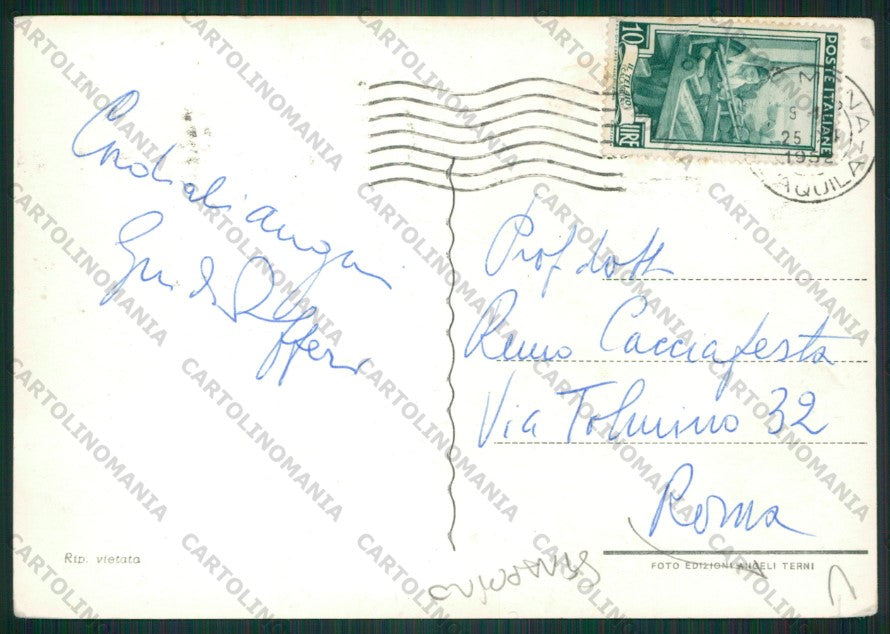 Cordiali auguri
Guido
10
LIRE
POSTE ITALIANE
25
1952
AQUILA
Prof dott
Remo Cacciafesta
Via Tolmino 32
Roma
Rip. vietata
FOTO EDIZIONI ANGELI TERNI
CARTOLINOMANIA